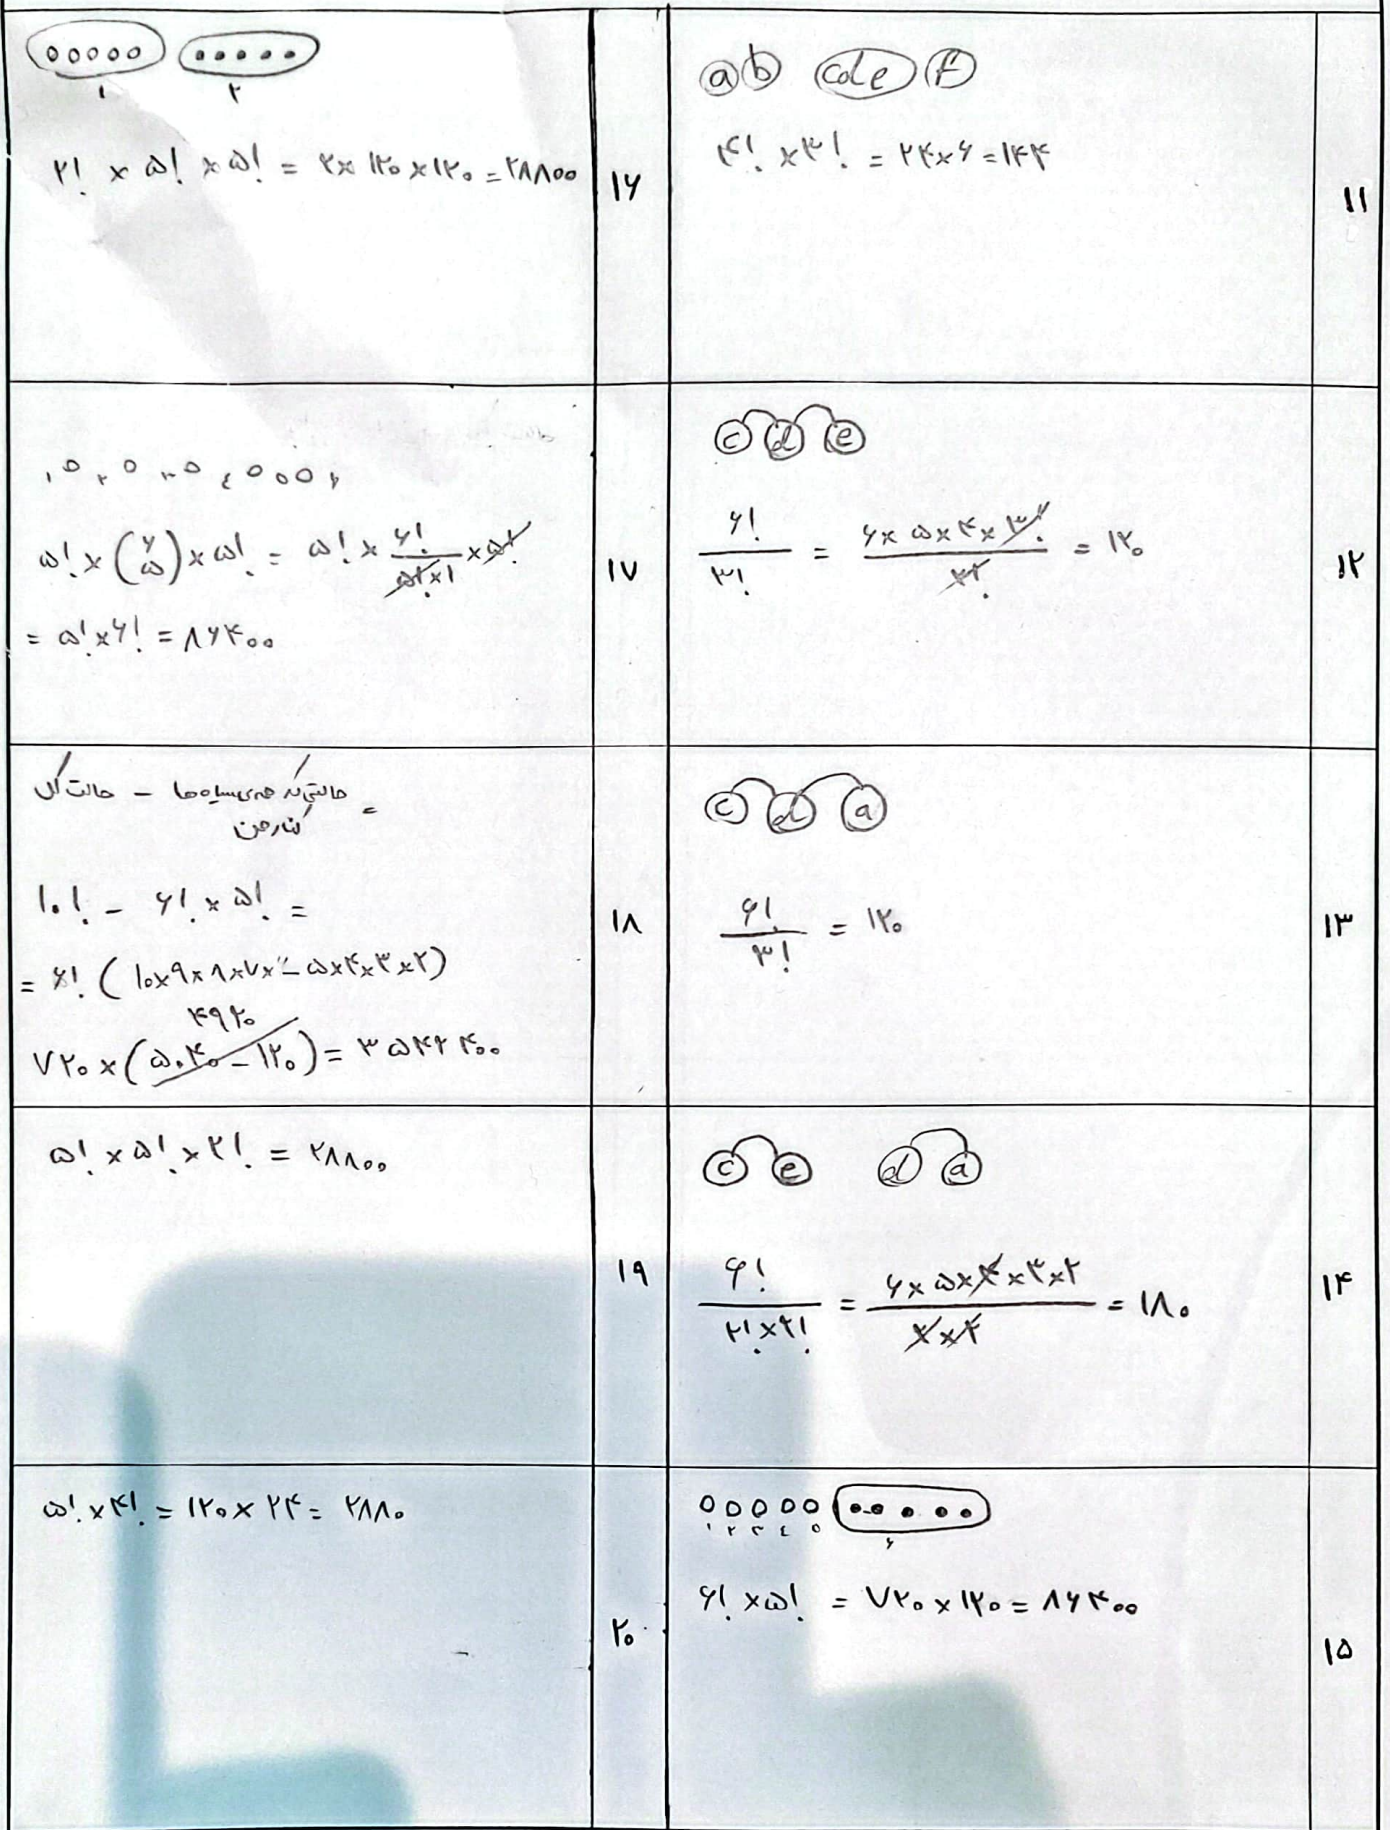 ۱۱
a b cde f
۴! × ۳! = ۲۴×۶ = ۱۴۴
۱۲
c d e
۶! / ۳! = ۶×۵×۴×۳! / ۳! = ۱۲۰
۱۳
c d a
۶! / ۳! = ۱۲۰
۱۴
c e d a
۶! / ۲!×۲! = ۶×۵×۴×۳×۲ / ۲×۲ = ۱۸۰
۱۵
۱ ۲ ۳ ٤ ۵ ۶
۶! × ۵! = ۷۲۰ × ۱۲۰ = ۸۶۴۰۰
۱۶
۱ ۲
۲! × ۵! × ۵! = ۲×۱۲۰×۱۲۰ = ۲۸۸۰۰
۱۷
۱ ۲ ۳ ٤ ۶
۵! × (۶ ۵) × ۵! = ۵! × ۶! / ۵!×۱ × ۵!
= ۵! × ۶! = ۸۶۴۰۰
۱۸
حالت کل – حالتی که همه‌ی سیاه‌ها =
کنار هن
۱۰! – ۶! × ۵! =
= ۶! (۱۰×۹×۸×۷ – ۵×۴×۳×۲)
۴۹۲۰
۷۲۰ × (۵۰۴۰ – ۱۲۰) = ۳۵۴۲۴۰۰
۱۹
۵! × ۵! × ۲! = ۲۸۸۰۰
۲۰
۵! × ۴! = ۱۲۰ × ۲۴ = ۲۸۸۰